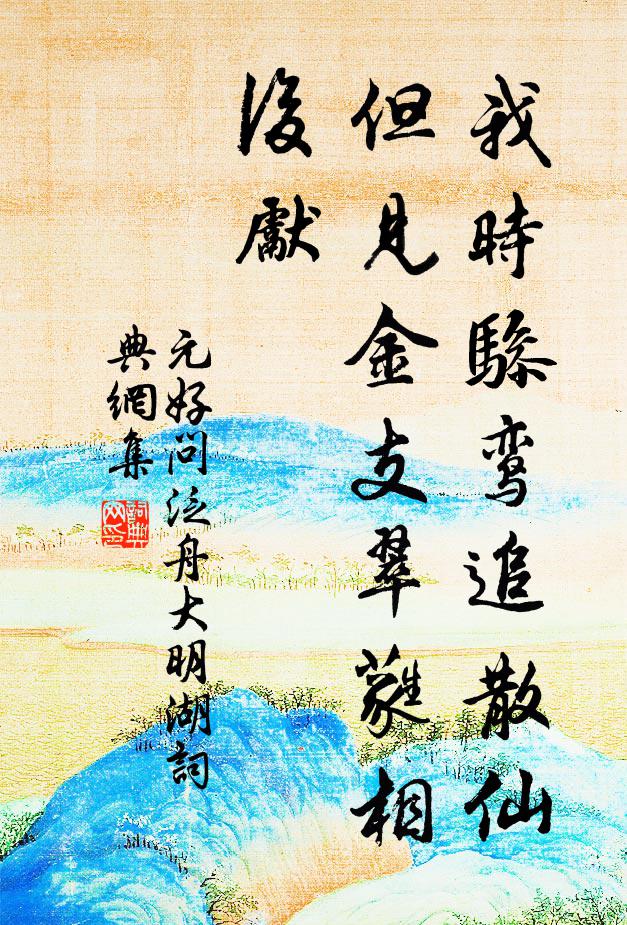 我時驂鸾追散仙
但見金支翠蕤相
後獻
元好問泛舟大明湖詞
典網集
詞典
网印